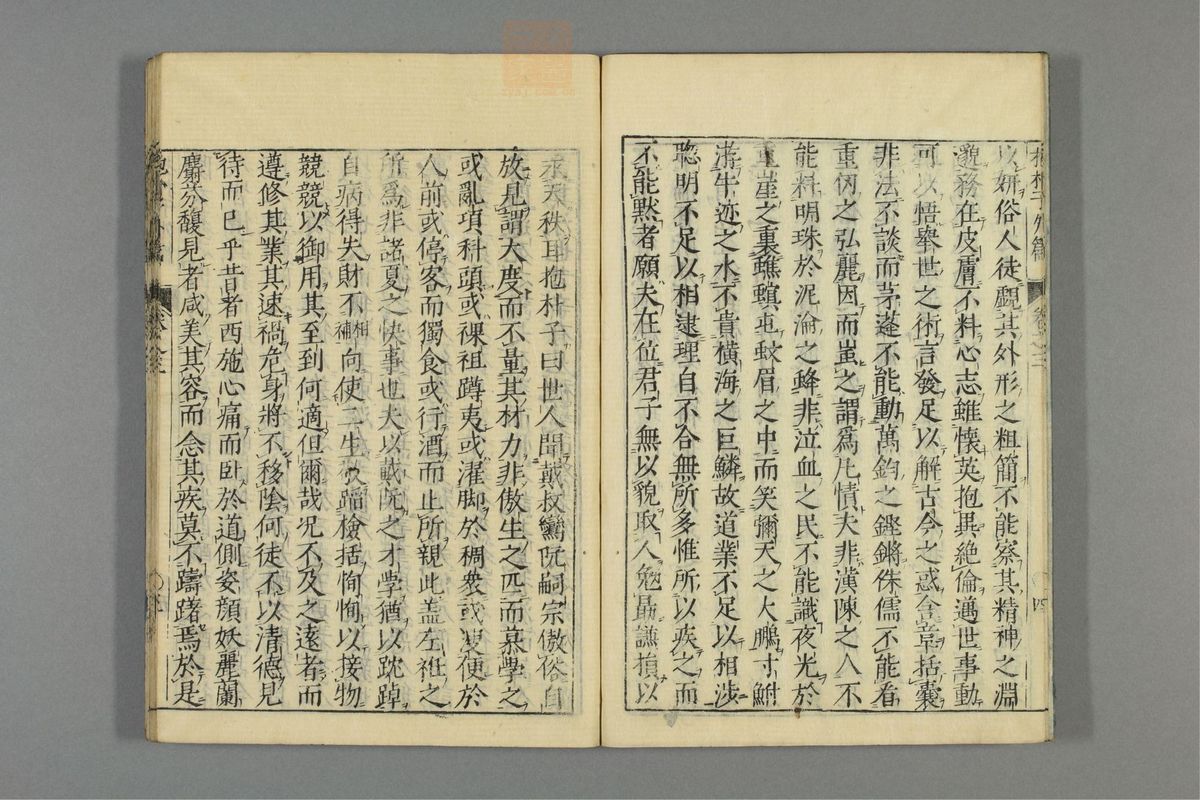 抱朴子外篇 卷之三 四
以妍俗人徒覩其外形之粗簡不能察其精神之淵
邈務在皮膚不料心志雖懷英抱異絕倫邁世事動
可以悟舉世之術言發足以解古今之惑含章括囊
非法不談而茅蓬不能動萬鈞之鏗鏘侏儒不能看
重仭之弘麗因而蚩之謂爲凡憒夫非漢陳之人不
能料明珠於泥淪之蜯非泣血之民不能識夜光於
重崖之裏蟭螟屯蚊眉之中而笑彌天之大鵬寸鮒
游牛迹之水不貴橫海之巨鱗故道業不足以相涉
聦明不足以相逮理自不合無所多惟所以疾之而
不能黙者願夫在位君子無以貌取人勉勗謙損以
永天秩耳抱朴子曰世人聞戴叔鸞阮嗣宗傲俗自
放見謂大度而不量其材力非傲生之匹而慕學之
或亂項科頭或裸袒蹲夷或濯脚於稠衆或溲便於
人前或停客而獨食或行酒而止所親此盖左袵之
所爲非諸夏之快事也夫以戴阮之才學猶以跅踔
自病得失財不相補向使二生敬蹈檢括恂恂以接物
競競以御用其至到何適但爾哉况不及之遠者而
遵修其業其速禍危身將不移陰何徒不以清德見
待而已乎昔者西施心痛而臥於道側姿顔妖麗蘭
麝芬馥見者咸美其容而念其疾莫不躊躇焉於是